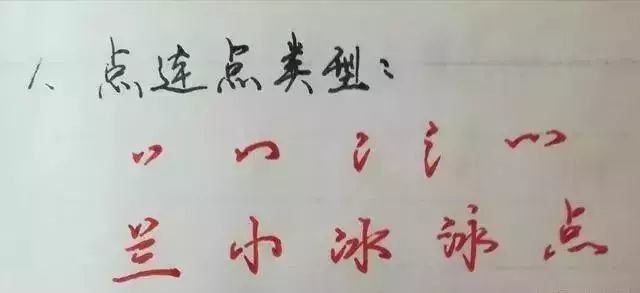 1、点连点类型：
丷 冫 氵 灬
兰小冰泳点